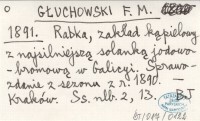 GŁUCHOWSKI F. M.
1891. Rabka, zakład kąpielowy
z najsilniejszą solanką jodowo-
-bromową w Galicyi. Sprawo-
zdanie z sezonu z r. 1890. —
Kraków. Ss. nlb. 2, 13. BJ